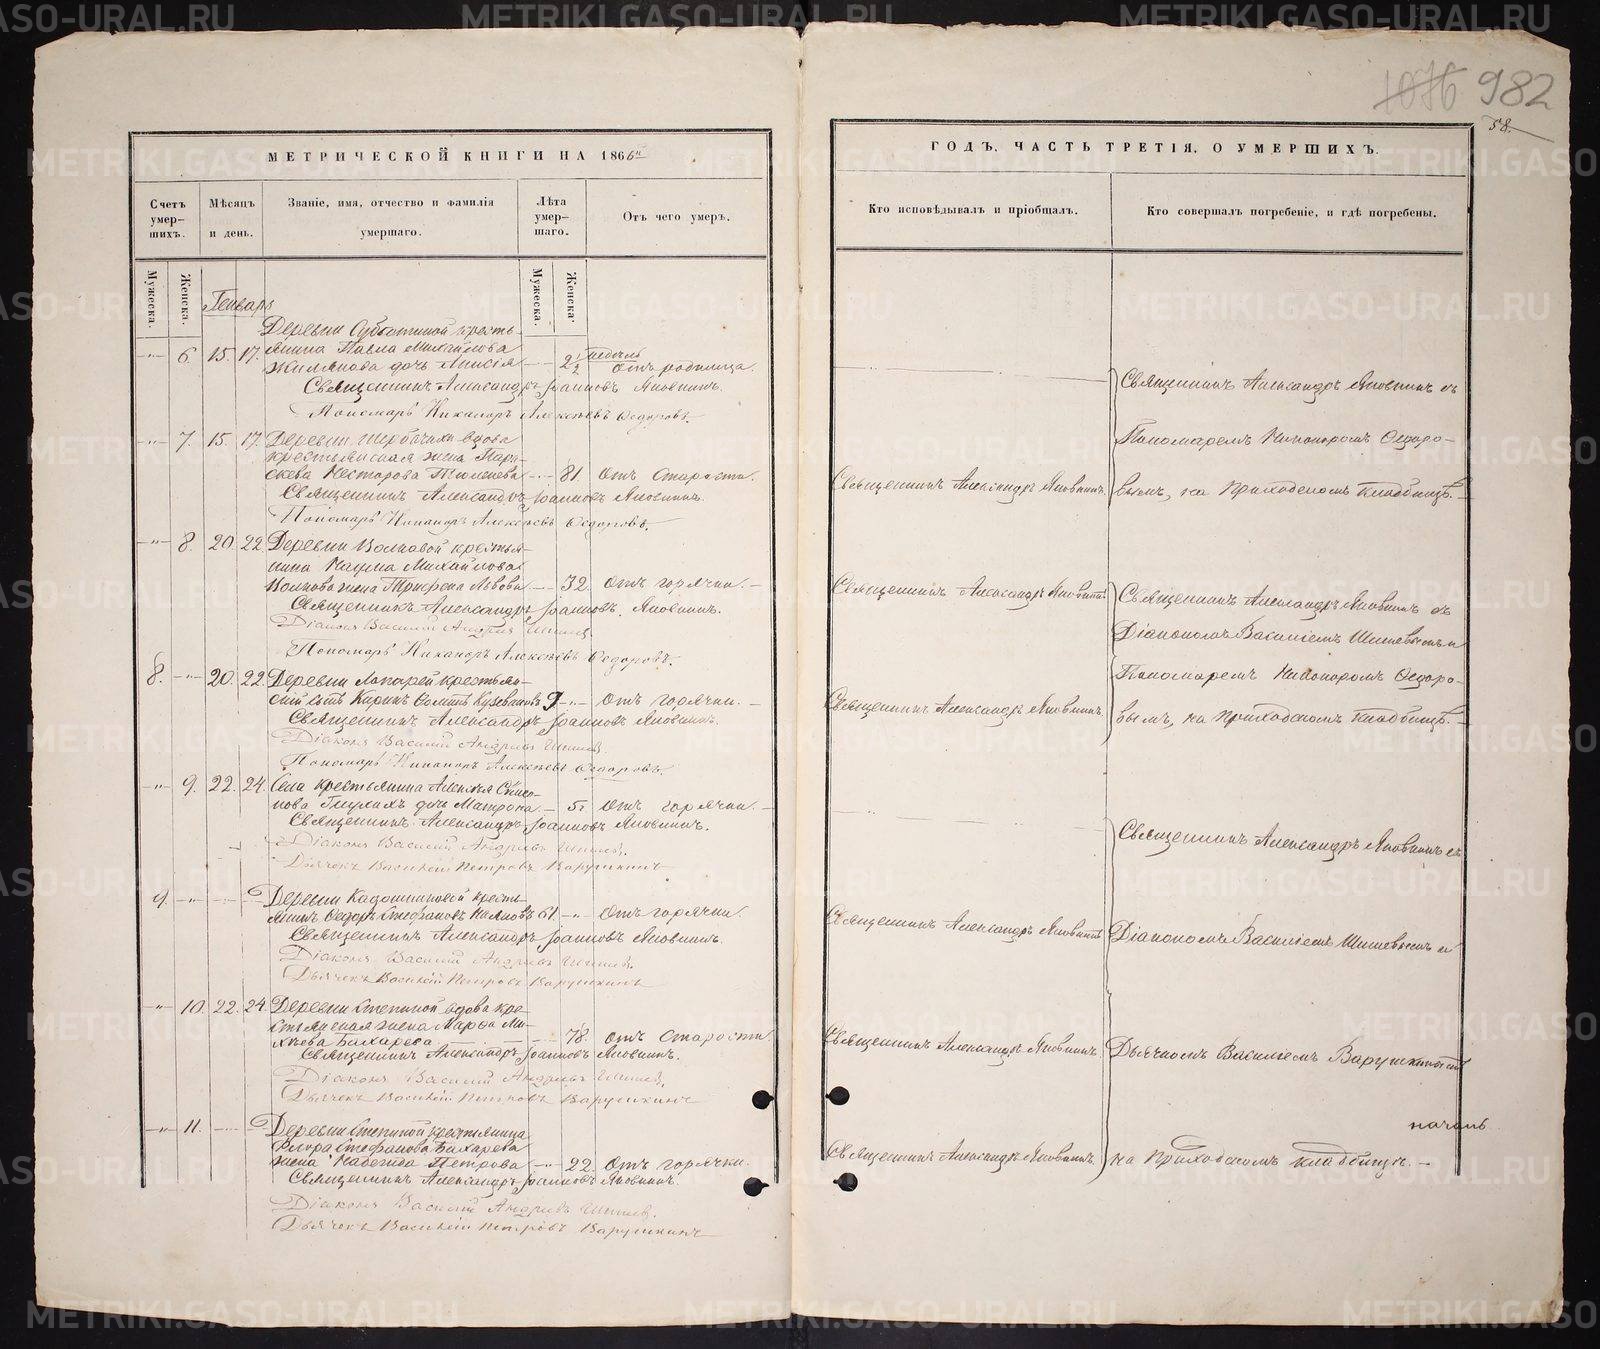 1076 982
58.
МЕТРИЧЕСКОЙ КНИГИ НА 1866й
ГОДЪ, ЧАСТЬ ТРЕТІЯ, О УМЕРШИХЪ.
Счетъ умер-шихъ.
Мѣсяцъ и день.
Званіе, имя, отчество и фамилія умершаго.
Лѣта умер-шаго.
Отъ чего умеръ.
Кто исповѣдывалъ и пріобщалъ.
Кто совершалъ погребеніе, и гдѣ погребены.
Мужеска. Женска. Мужеска. Женска.
Генварь
Деревни Субботиной кресть-
6. 15. 17. янина Павла Михайлова
дочь Анисія 2½ недѣль Отъ родимца.
Священникъ Александръ Іоанновъ Яновкинъ.
Пономарь Никаноръ Алексѣевъ Ѳедоровъ.
7. 15. 17. Деревни Щербачихи вдова
крестьянская жена Пара-
скева Несторова 81 Отъ старости.
Священникъ Александръ Іоанновъ Яновкинъ.
Пономарь Никаноръ Алексѣевъ Ѳедоровъ.
8. 20. 22. Деревни Волковой крестья-
нина Наума Михайлова
Волкова жена Трифена Львова 32. Отъ горячки.
Священникъ Александръ Іоанновъ Яновкинъ.
Діаконъ Василій Андріевъ Шишевъ.
Пономарь Никаноръ Алексѣевъ Ѳедоровъ.
8. 20. 22. Деревни Лопарей крестьян-
скій сынъ Кирикъ 9 Отъ горячки.
Священникъ Александръ Іоанновъ Яновкинъ.
Діаконъ Василій Андріевъ Шишевъ.
Пономарь Никаноръ Алексѣевъ Ѳедоровъ.
9. 22. 24. Села крестьянина Алексѣя
дочь Матрона 5. Отъ горячки.
Священникъ Александръ Іоанновъ Яновкинъ.
Діаконъ Василій Андріевъ Шишевъ.
Дьячекъ Василій Петровъ Варушкинъ
9. Деревни Кадошниковой кресть-
янинъ Ѳедоръ Стефановъ 61 Отъ горячки.
Священникъ Александръ Іоанновъ Яновкинъ.
Діаконъ Василій Андріевъ Шишевъ.
Дьячекъ Василій Петровъ Варушкинъ
10. 22. 24. Деревни Степиной вдова кре-
стьянская жена Марѳа Ми-
хѣева Бахарева 78. Отъ старости.
Священникъ Александръ Іоанновъ Яновкинъ.
Діаконъ Василій Андріевъ Шишевъ.
Дьячекъ Василій Петровъ Варушкинъ
11. Деревни Степиной крестьянина
Егора Стефанова Бахарева
жена Надежда Петрова 22. Отъ горячки.
Священникъ Александръ Іоанновъ Яновкинъ.
Діаконъ Василій Андріевъ Шишевъ.
Дьячекъ Василій Петровъ Варушкинъ
Священникъ Александръ Яновкинъ съ
Пономаремъ Никаноромъ Ѳедоро-
Священникъ Александръ Яновкинъ. вымъ, на приходскомъ кладбищѣ.
Священникъ Александръ Яновкинъ Священникъ Александръ Яновкинъ съ
Діакономъ Василіемъ Шишевымъ и
Пономаремъ Никаноромъ Ѳедоро-
Священникъ Александръ Яновкинъ. вымъ, на приходскомъ кладбищѣ.
Священникъ Александръ Яновкинъ съ
Священникъ Александръ Яновкинъ Діакономъ Василіемъ Шишевымъ и
Священникъ Александръ Яновкинъ. Дьячкомъ Василіемъ Варушкинымъ
Священникъ Александръ Яновкинъ. на приходскомъ кладбищѣ.
METRIKI.GASO-URAL.RU